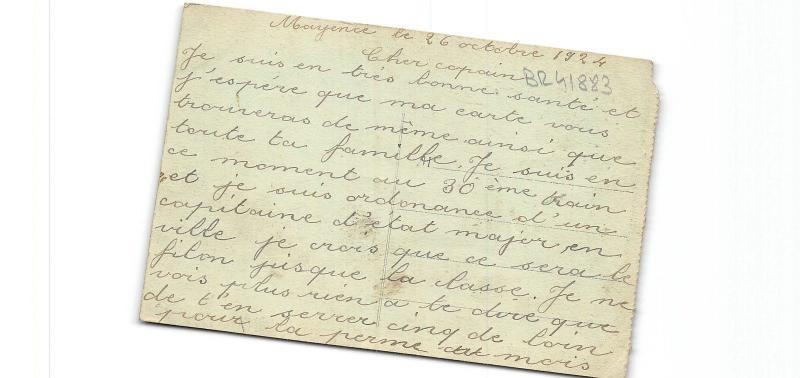 Mayence le 26 octobre 1924
Cher copain
BR41883
Je suis en trés bonne santé et
j'espére que ma carte vous
trouveras de même ainsi que
toute ta famille. Je suis en
ce moment au 30 ème train
et je suis ordonance d'un
capitaine d'état major, en
ville je crois que ce sera le
filon jusque la classe. Je ne
vois plus rien a te dire que
de t'en serrer cinq de loin
pour la perme du mois